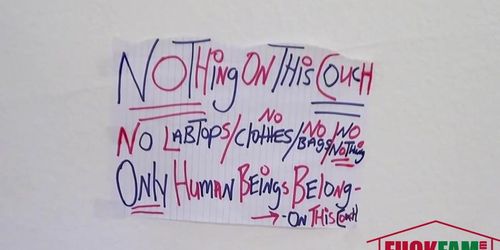 NOTHING ON THIS COUCH
NO LABTOPS/CLOTHES/NO BAGS/NO NOTHING
ONLY HUMAN BEINGS BELONG-
→ -ON THIS COUCH
FUCKFAM